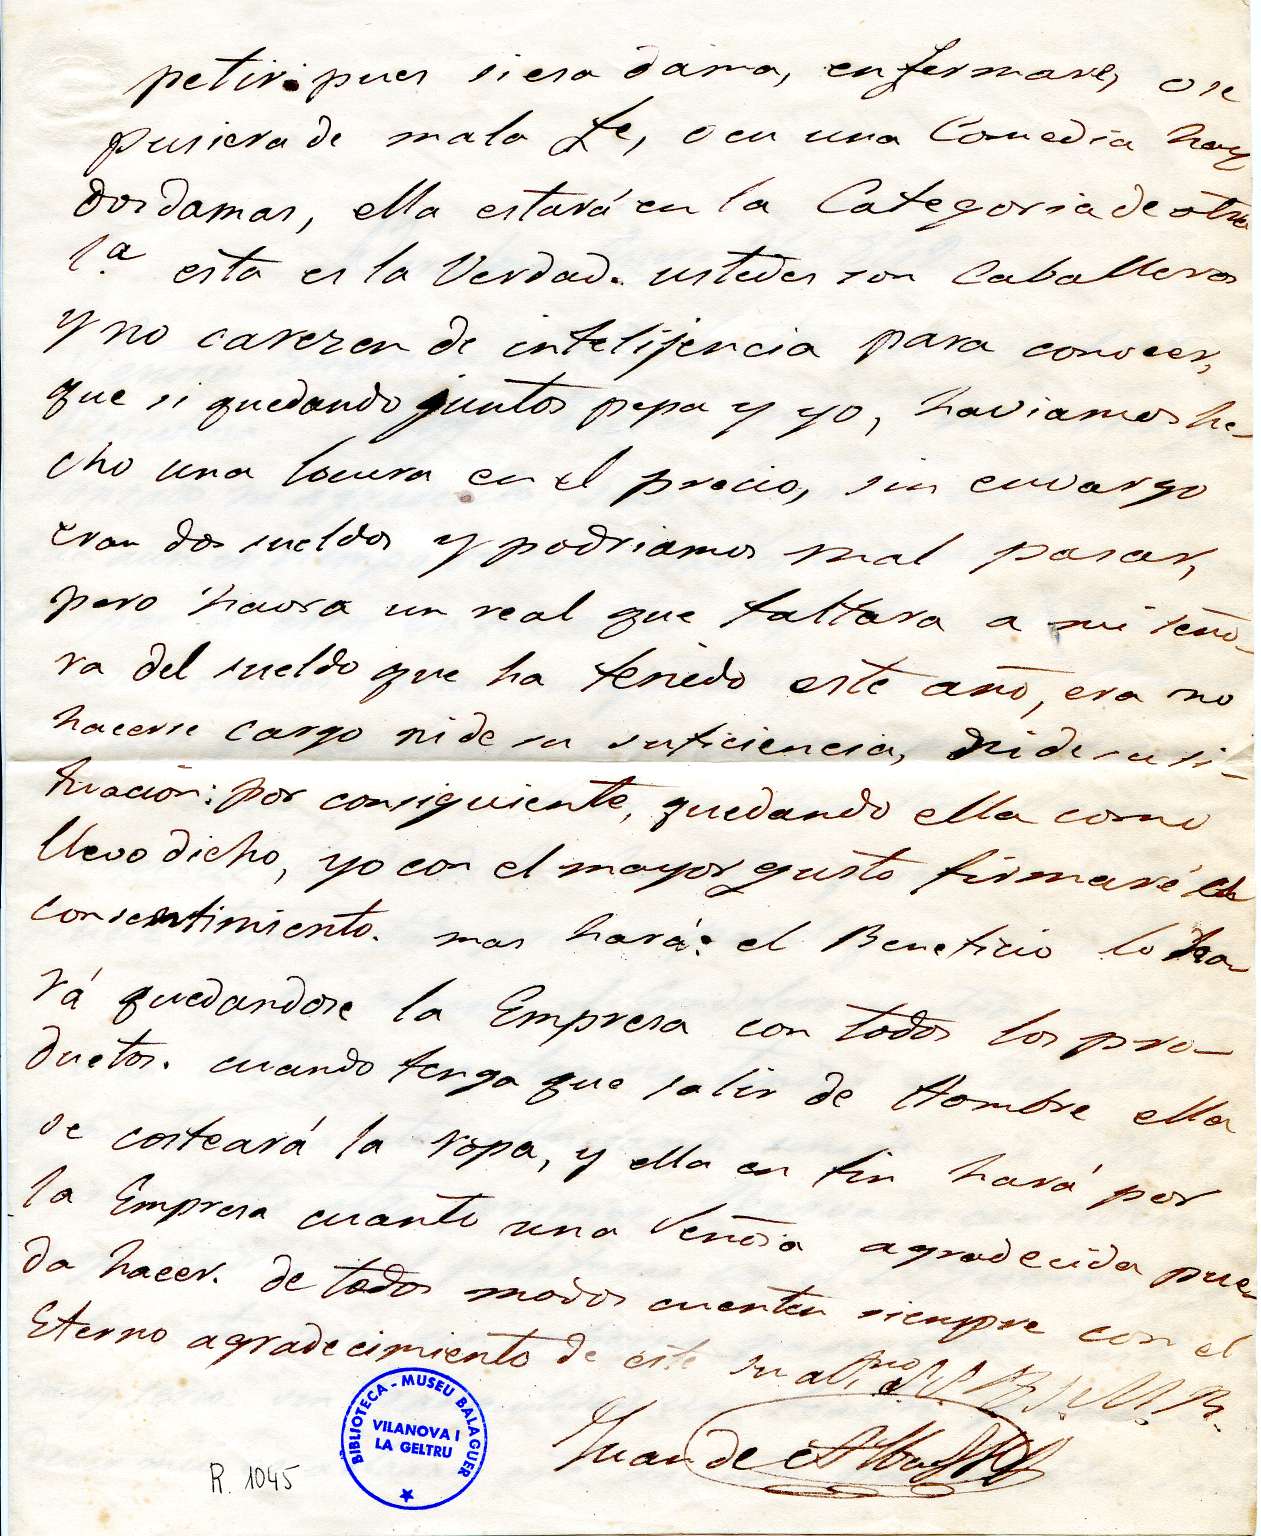 petir. pues si esa dama, enfermare, o se
pusiera de mala fe, o en una Comedia hay
dos damas, ella estará en la Categoria de otra
1.ª esta es la Verdad. ustedes son Caballeros
y no carezen de intelijencia para conocer,
que si quedando juntos pepa y yo, haviamos he-
cho una locura en el precio, sin envargo
eran dos sueldos y podriamos mal pasar,
pero haora un real que faltara a mi Seño-
ra del sueldo que ha tenido este año, era no
hacerse cargo ni de su suficiencia, ni de su si-
tuacion: por consiguiente, quedando ella como
llevo dicho, yo con el mayor gusto firmaré el
consentimiento. mas hará: el Beneficio lo ha-
rá quedandose la Empresa con todos los pro-
ductos. cuando tenga que salir de Hombre ella
se costeará la ropa, y ella en fin hará por
la Empresa cuanto una Señora agradecida pue-
da hacer. de todos modos cuenten siempre con el
Eterno agradecimiento de este su
Juan de Alba
R. 1045
BIBLIOTECA - MUSEU BALAGUER
VILANOVA I
LA GELTRU